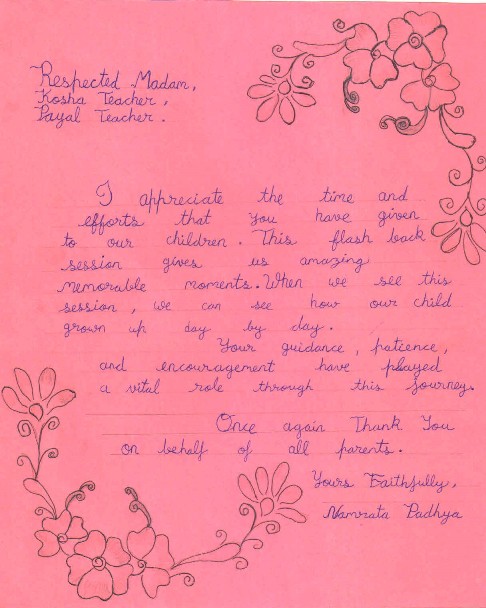 Respected Madam,
Kosha Teacher,
Payal Teacher.
I appreciate the time and
efforts that you have given
to our children. This flash back
session gives us amazing
memorable moments. When we see this
session, we can see how our child
grown up day by day.
Your guidance, patience,
and encouragement have played
a vital role through this journey.
Once again Thank You
on behalf of all parents.
Yours Faithfully,
Namrata Padhya